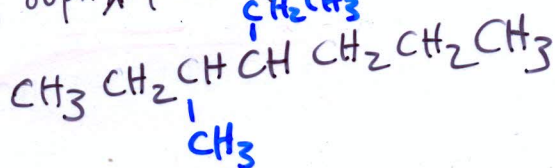 CH2CH3
CH3 CH2 CH CH CH2 CH2 CH3
CH3